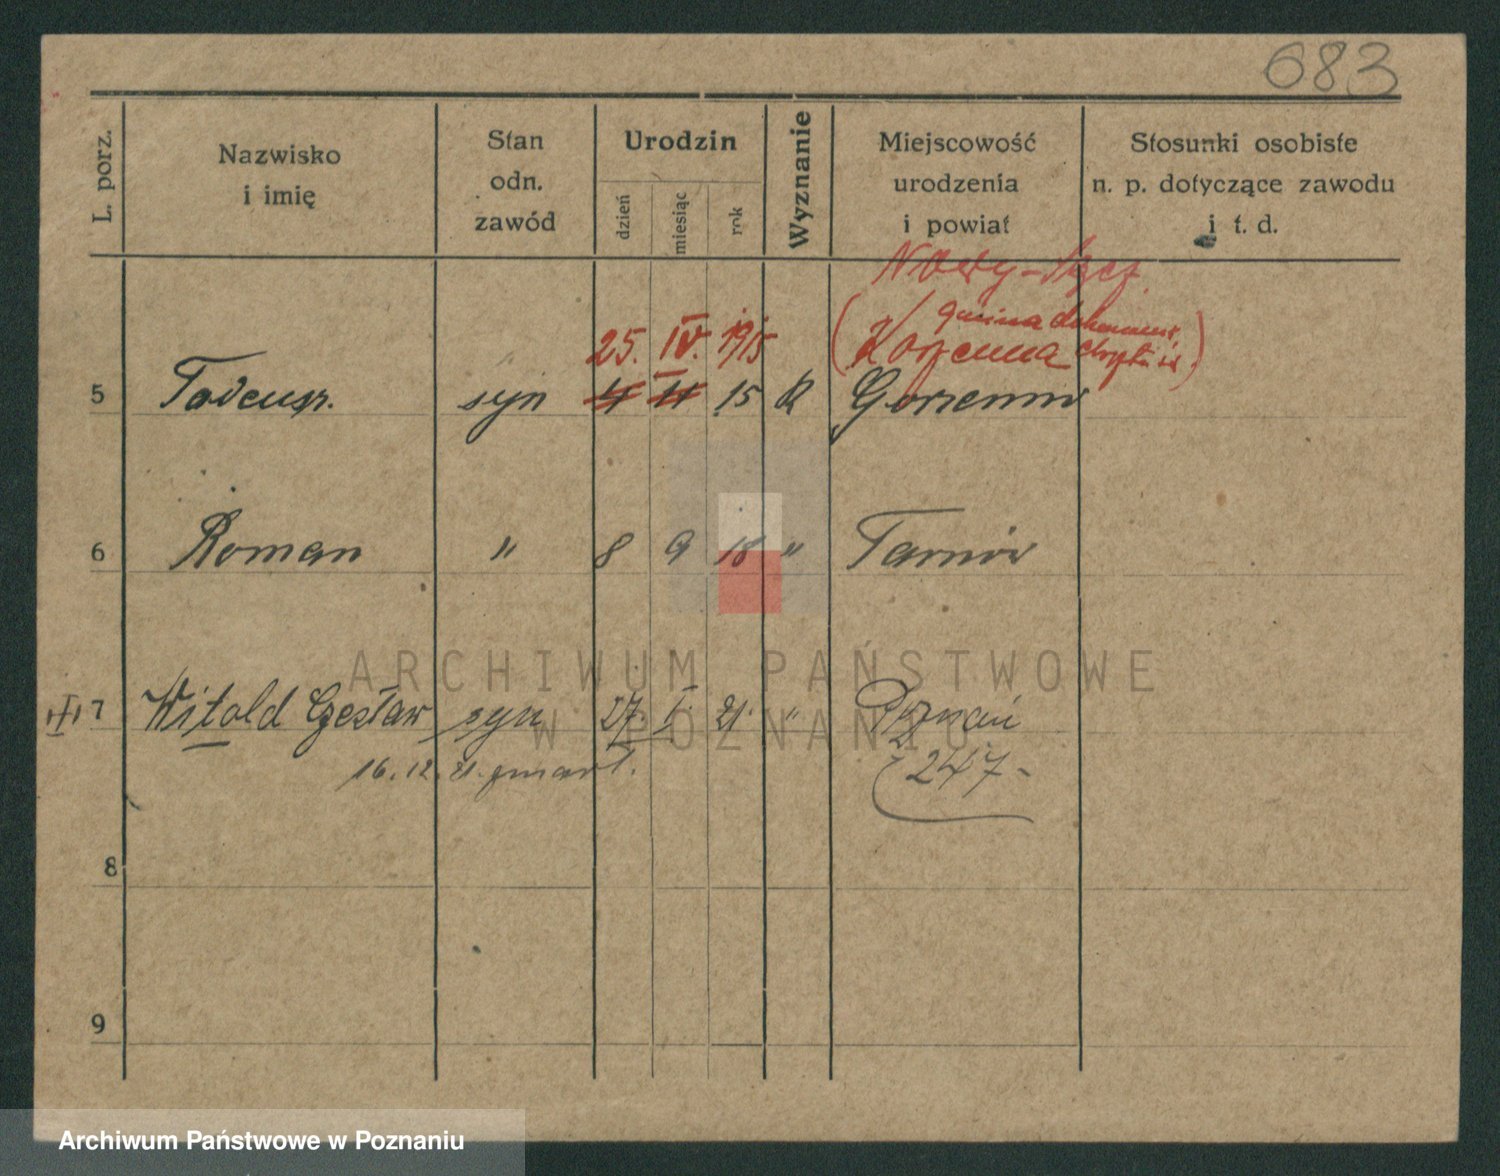 683
L. porz.
Nazwisko
i imię
Stan
odn.
zawód
Urodzin
dzień
miesiąc
rok
Wyznanie
Miejscowość
urodzenia
i powiat
Stosunki osobiste
n. p. dotyczące zawodu
i t. d.
Nowy-Sącz
25. IV. 1915 (Korzenna gmina
5 Tadeusz. syn 4 11 15 R
6 Roman " 8 9 18 " Tarnów
7 Witold Czesław syn 27. I. 21. " Poznań
16.12.21. zmarł. 247-
8
9
ARCHIWUM PAŃSTWOWE
W POZNANIU
Archiwum Państwowe w Poznaniu